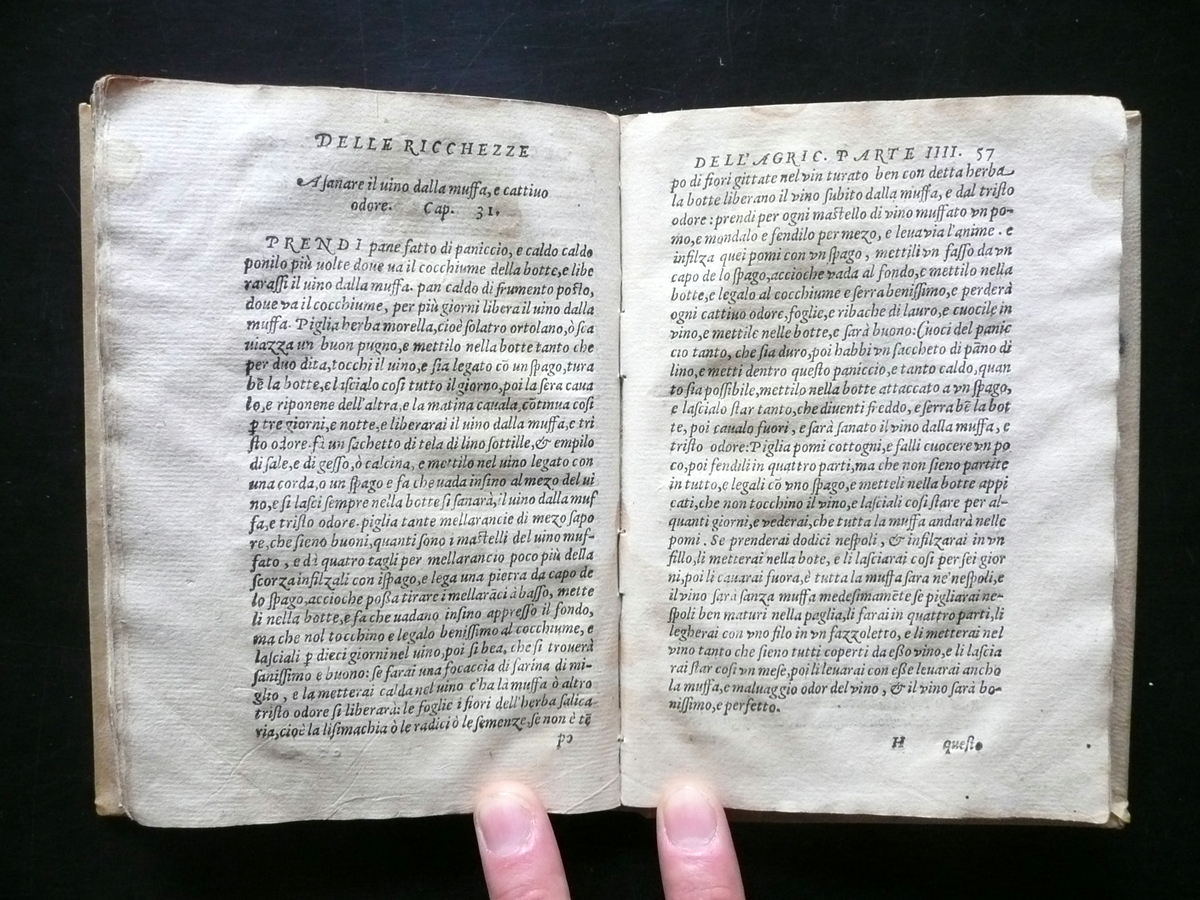 DELLE RICCHEZZE
A sanare il uino dalla muffa, e cattiuo
odore. Cap. 31.
PRENDI pane fatto di paniccio, e caldo caldo
ponilo più uolte doue ua il cocchiume della botte, e libe
rarassi il uino dalla muffa. pan caldo di frumento posto,
doue va il cocchiume, per più giorni libera il uino dalla
muffa. Piglia herba morella, cioè solatro ortolano, ò sca
uiazza un buon pugno, e mettilo nella botte tanto che
per duo dita, tocchi il uino, e sia legato cō un spago, tura
bē la botte, e lascialo cosi tutto il giorno, poi la sera caua
lo, e riponene dell'altra, e la matina cauala, cōtinua cosi
ꝑ tre giorni, e notte, e liberarai il uino dalla muffa, e tri
sto odore. fà un sachetto di tela di lino sottille, & empilo
di sale, e di gesso, ò calcina, e mettilo nel uino legato con
una corda, o un spago e fa che uada insino al mezo del ui
no, e si lasci sempre nella botte si sanarà, il uino dalla muf
fa, e tristo odore. piglia tante mellarancie di mezo sapo
re, che sieno buoni, quanti sono i mastelli del uino muf-
fato, e dà quatro tagli per mellarancio poco più della
scorza infilzali con ispago, e lega una pietra da capo de
lo spago, accioche possa tirare i mellarāci à basso, mette
li nella botte, e fa che uadano insino appresso il fondo,
ma che nol tocchino e legalo benissimo al cocchiume, e
lasciali ꝑ dieci giorni nel uino, poi si bea, che si trouerà
sanissimo e buono: se farai una focaccia di farina di mi-
glio, e la metterai calda nel uino c'ha la muffa ò altro
tristo odore si liberarà: le foglie i fiori dell'herba salica
ria, cioè la lisimachia ò le radici ò le semenze se non è tē
po
DELL'AGRIC. PARTE IIII. 57
po di fiori gittate nel vin turato ben con detta herba
la botte liberano il vino subito dalla muffa, e dal tristo
odore: prendi per ogni mastello di vino muffato vn po-
mo, e mondalo e fendilo per mezo, e leuavia l'anime. e
infilza quei pomi con vn spago, mettili vn sasso da vn
capo de lo spago, accioche vada al fondo, e mettilo nella
botte, e legalo al cocchiume e serra benissimo, e perderà
ogni cattiuo odore, foglie, e ribache di lauro, e cuocile in
vino, e mettile nelle botte, e sarà buono: Cuoci del panic
cio tanto, che sia duro, poi habbi vn saccheto di pāno di
lino, e metti dentro questo paniccio, e tanto caldo, quan
to sia possibile, mettilo nella botte attaccato a vn spago,
e lascialo star tanto, che diuenti freddo, e serra bē la bot
te, poi caualo fuori, e sarà sanato il vino dalla muffa, e
tristo odore: Piglia pomi cottogni, e falli cuocere vn po
co, poi fendili in quattro parti, ma che non sieno partite
in tutto, e legali cō vno spago, e metteli nella botte appi
cati, che non tocchino il vino, e lasciali cosi stare per al-
quanti giorni, e vederai, che tutta la muffa andarà nelle
pomi. Se prenderai dodici nespoli, & infilzarai in vn
fillo, li metterai nella bote, e li lasciarai cosi per sei gior
ni, poi li cauarai fuora, è tutta la muffa sara ne' nespoli, e
il vino sarà sanza muffa medesimamēte sè pigliarai ne-
spoli ben maturi nella paglia, li farai in quattro parti, li
legherai con vno filo in vn fazzoletto, e li metterai nel
vino tanto che sieno tutti coperti da esso vino, e li lascia
rai star cosi vn mese, poi li leuarai con esse leuarai ancho
la muffa, e maluaggio odor del vino, & il vino sarà bo-
nissimo, e perfetto.
H questo